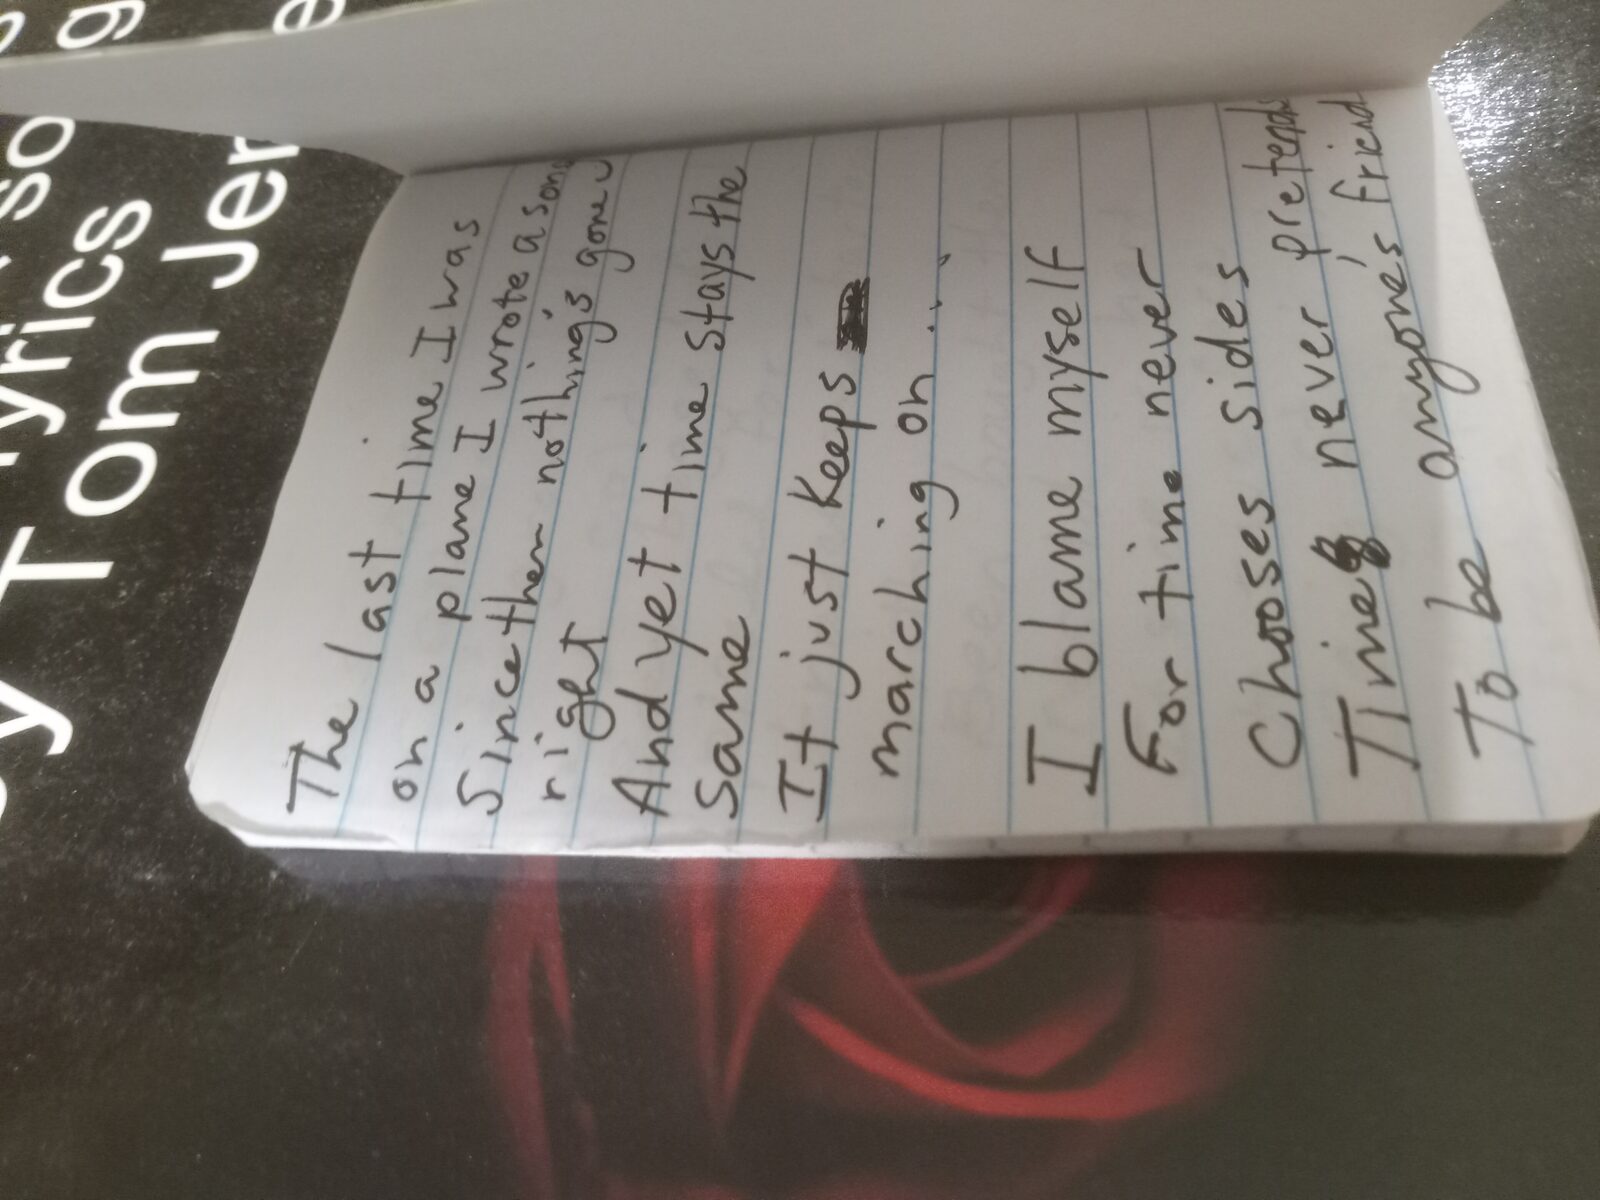 lyrics
Tom Jer
The last time I was
on a plane I wrote a song
Since then nothing's gone
right
And yet time stays the
same
It just keeps
marching on...
I blame myself
For time never
Chooses sides
Time never pretends
To be anyone's friend